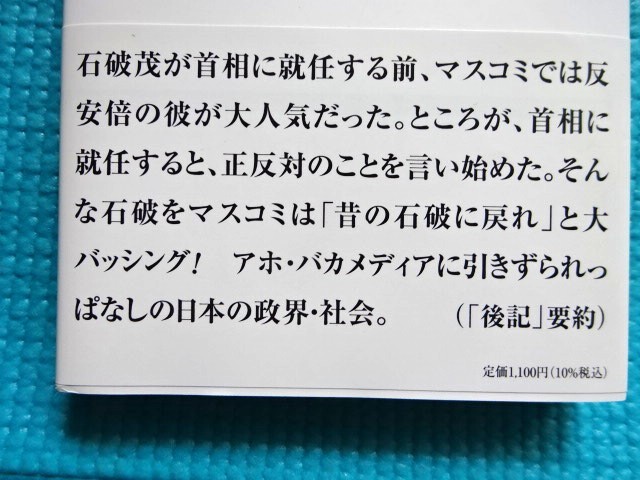 石破茂が首相に就任する前、マスコミでは反
安倍の彼が大人気だった。ところが、首相に
就任すると、正反対のことを言い始めた。そん
な石破をマスコミは「昔の石破に戻れ」と大
バッシング！　アホ・バカメディアに引きずられっ
ぱなしの日本の政界・社会。　　（「後記」要約）
定価1,100円（10%税込）